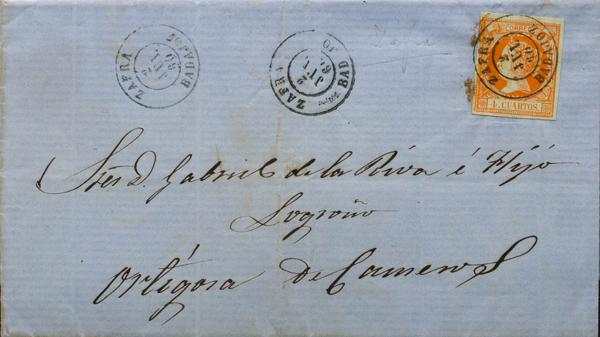 ZAFRA BADAJOZ
2 JUL 62
ZAFRA BADAJOZ
2 JUL
ZAFRA BADAJOZ
JUL 62
CORREOS
4 CUARTOS.
Sres D. Gabriel de la Riva é Hijo
Logroño
Ortigosa de Cameros